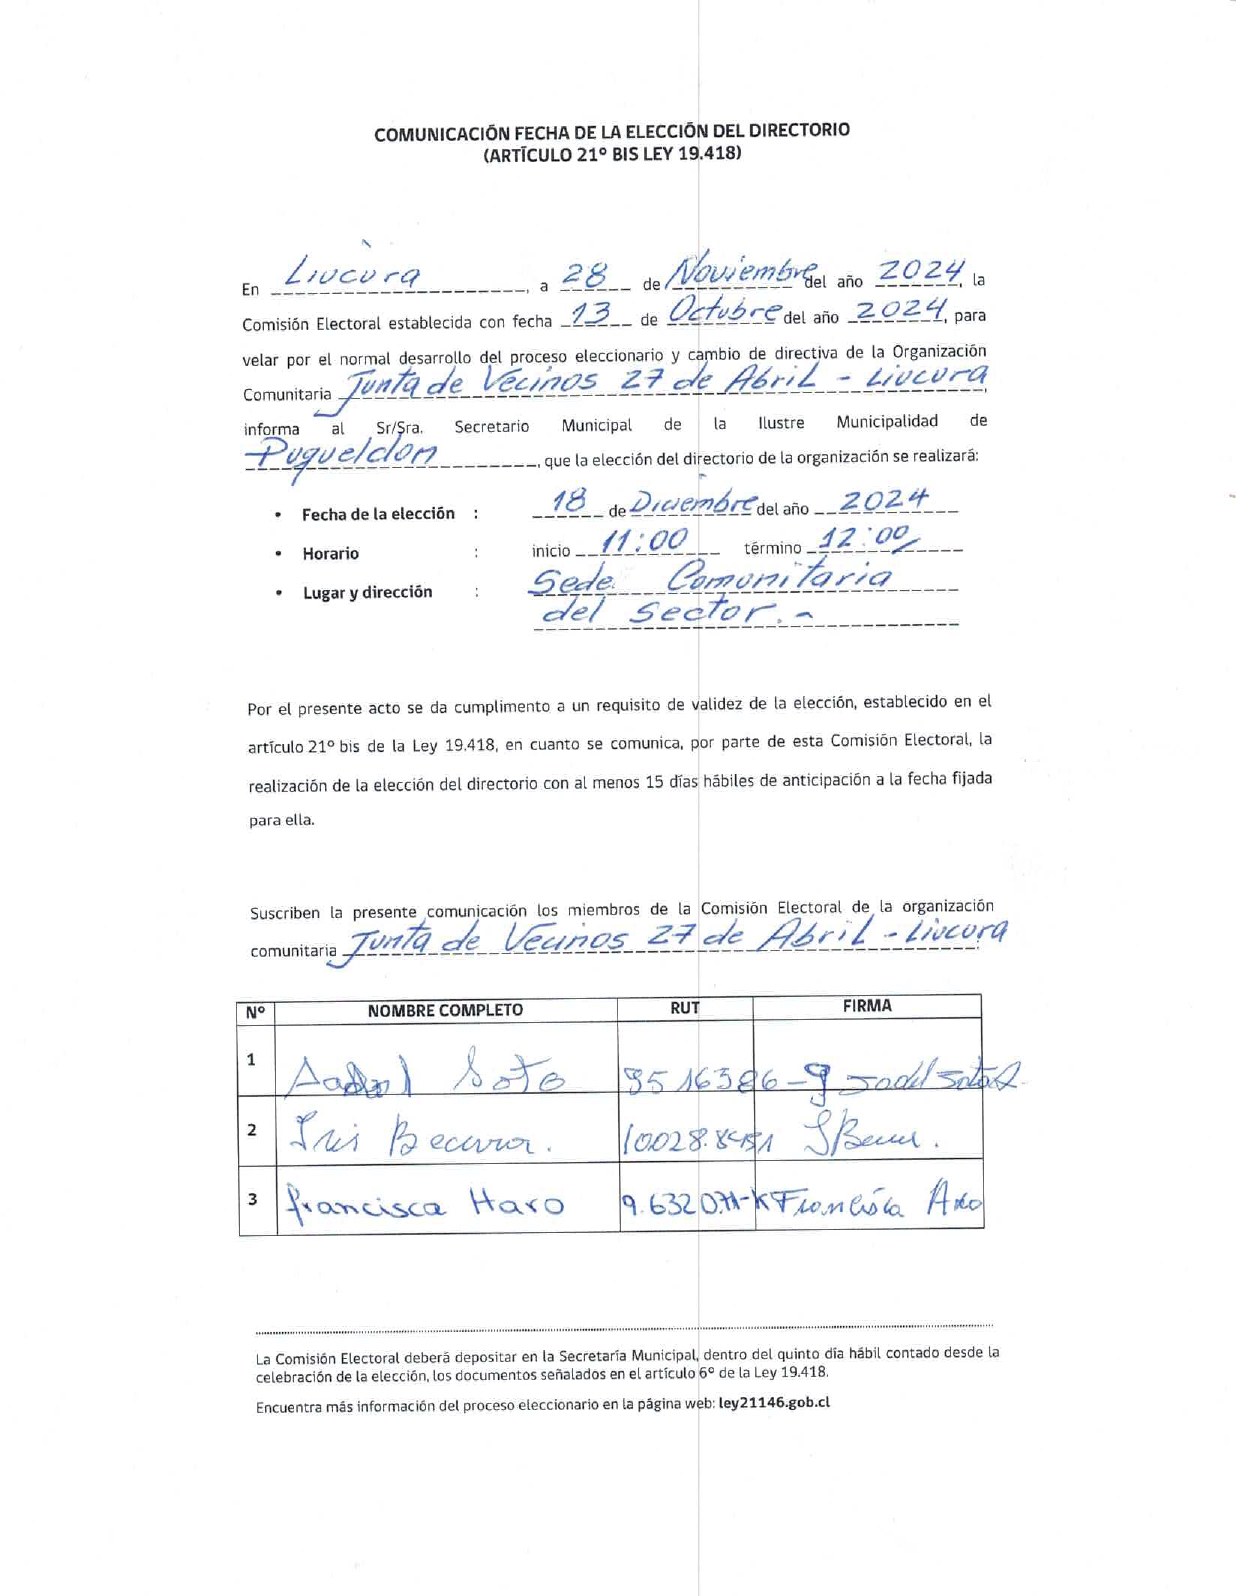 COMUNICACIÓN FECHA DE LA ELECCIÓN DEL DIRECTORIO
(ARTÍCULO 21º BIS LEY 19.418)
En Liucura, a 28 de Noviembre del año 2024, la
Comisión Electoral establecida con fecha 13 de Octubre del año 2024, para
velar por el normal desarrollo del proceso eleccionario y cambio de directiva de la Organización
Comunitaria Junta de Vecinos 27 de Abril - Liucura,
informa al Sr/Sra. Secretario Municipal de la Ilustre Municipalidad de
Puqueldon, que la elección del directorio de la organización se realizará:
• Fecha de la elección : 18 de Diciembre del año 2024
• Horario : inicio 11:00 término 12:00
• Lugar y dirección : Sede Comunitaria
del Sector.-
Por el presente acto se da cumplimento a un requisito de validez de la elección, establecido en el
artículo 21º bis de la Ley 19.418, en cuanto se comunica, por parte de esta Comisión Electoral, la
realización de la elección del directorio con al menos 15 días hábiles de anticipación a la fecha fijada
para ella.
Suscriben la presente comunicación los miembros de la Comisión Electoral de la organización
comunitaria Junta de Vecinos 27 de Abril - Liucura
Nº NOMBRE COMPLETO RUT FIRMA
1 Soto 9516386-9
2 Iris Becerra.
3 Francisca Haro Francisca
La Comisión Electoral deberá depositar en la Secretaría Municipal, dentro del quinto día hábil contado desde la
celebración de la elección, los documentos señalados en el artículo 6º de la Ley 19.418.
Encuentra más información del proceso eleccionario en la página web: ley21146.gob.cl